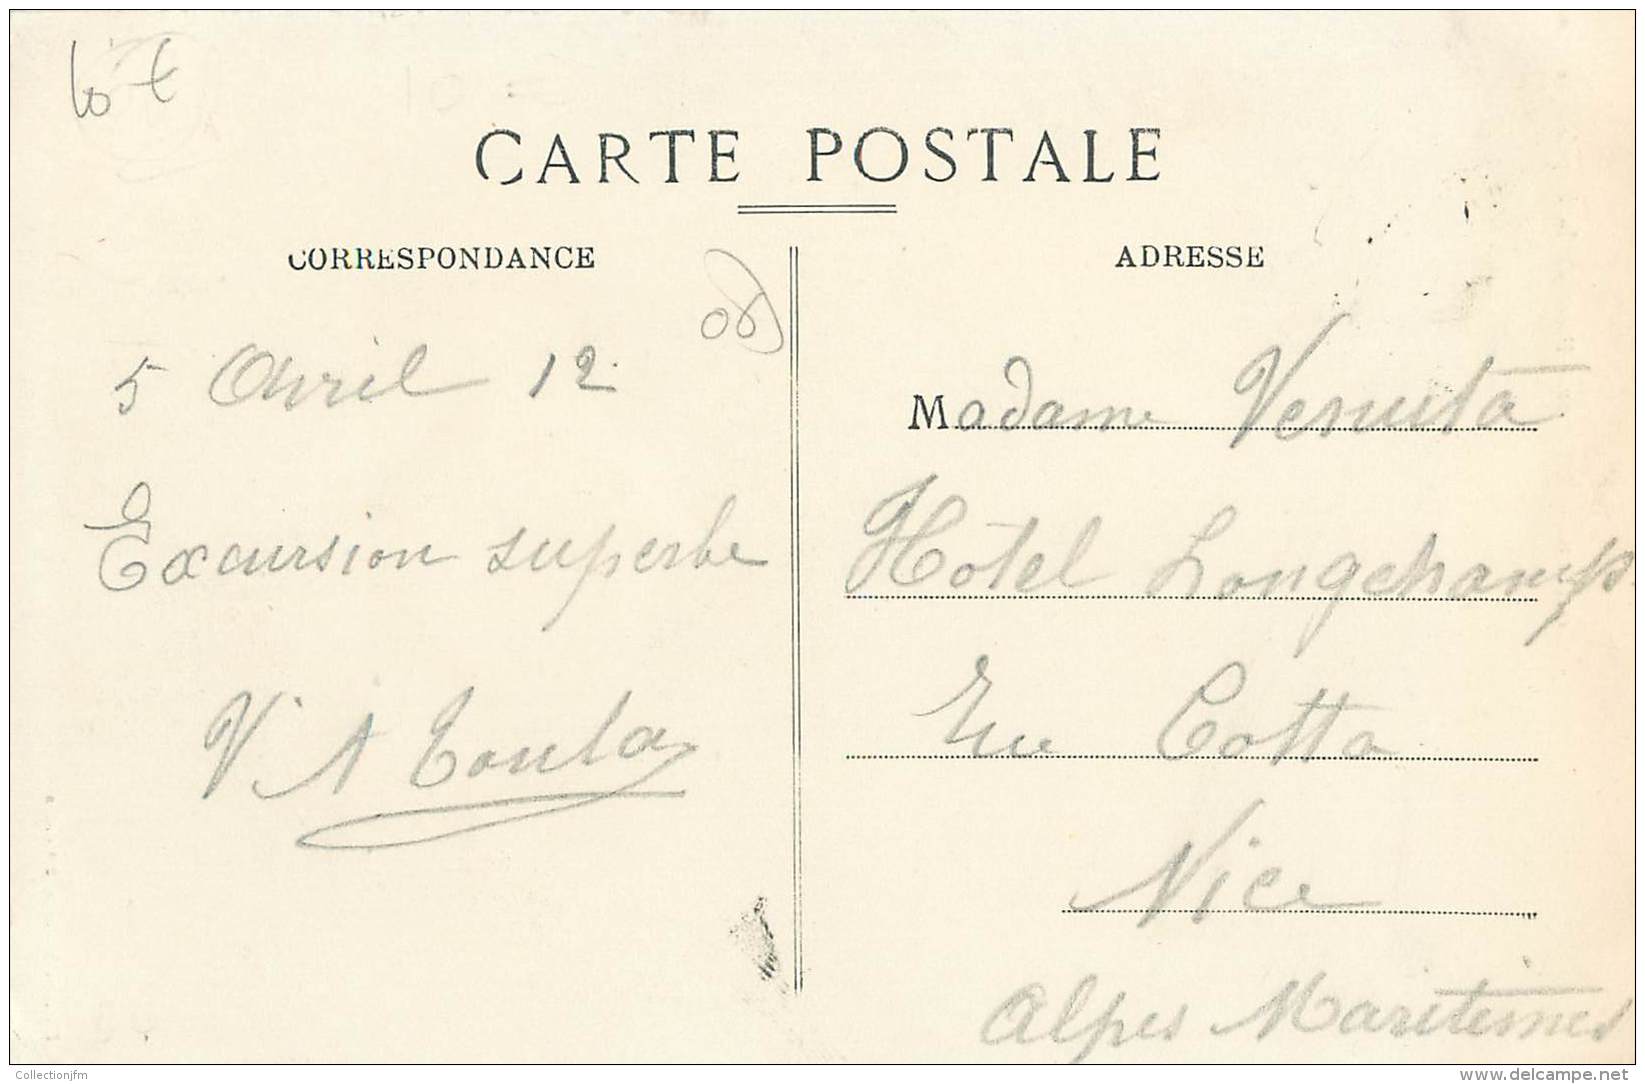 CARTE POSTALE
CORRESPONDANCE
5 Avril 12
Excursion superbe
ADRESSE
Madame
Hôtel Longchamp
rue Cotta
Nice
Alpes Maritimes
06
Collectionjfm
delcampe.net